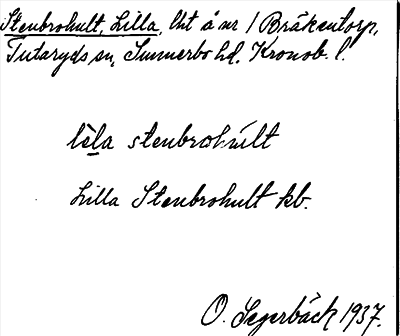 Stenbrohult, Lilla, lht å nr 1 Bråkentorp,
Tutaryds sn, Sunnerbo hd. Kronob. l.
lèla stenbrohúlt
Lilla Stenbrohult kb.
O. Segerbäck 1937.